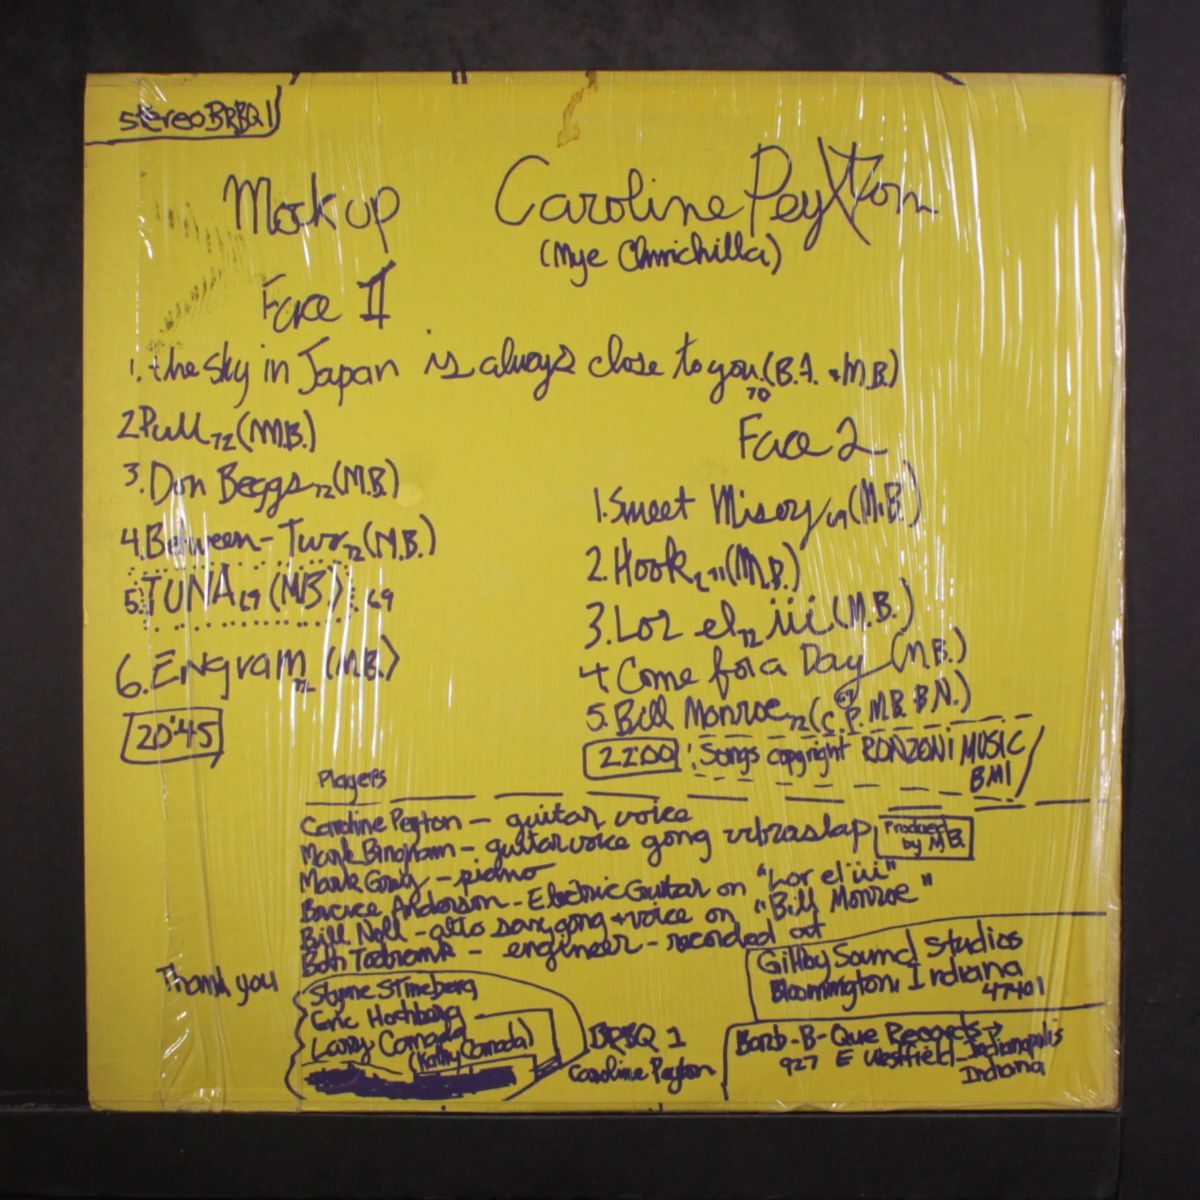 stereo BRBQ 1
Mock up
Caroline Peyton
(Mye Chinichilla)
Face II
1. the sky in Japan is always close to you 70 (B.A. + M.B.)
2 Pull 72 (M.B.)
3. Don Beggs 72 (M.B.)
4. Between-Two 72 (M.B.)
5. TUNA 69 (M.B.) 69
6. Engram 72 (M.B.)
20:45
Face 2
1. Sweet Misery 69 (M.B.)
2. Hook 71 (M.B.)
3. Lor el 72 iii (M.B.)
4 Come for a Day (M.B.)
69
5. Bill Monroe 72 (C.P. M.B. B.N.)
22:00 Songs copyright RONZONI MUSIC
BMI
Players
Caroline Peyton - guitar voice
Mark Bingham - guitar voice gong vibraslap
Produced
by M.B.
Mark Gray - piano
Bruce Anderson - Electric Guitar on "Lor el iii"
Bill Noll - alto sax gong + voice on "Bill Monroe"
Bob - engineer - recorded at
Gilfoy Sound Studios
Bloomington, Indiana
47401
Thank you
Stineberg
Eric
Larry Canada
(Kathy Canada)
BRBQ 1
Caroline Peyton
Barb-B-Que Records
927 E Westfield Indianapolis
Indiana